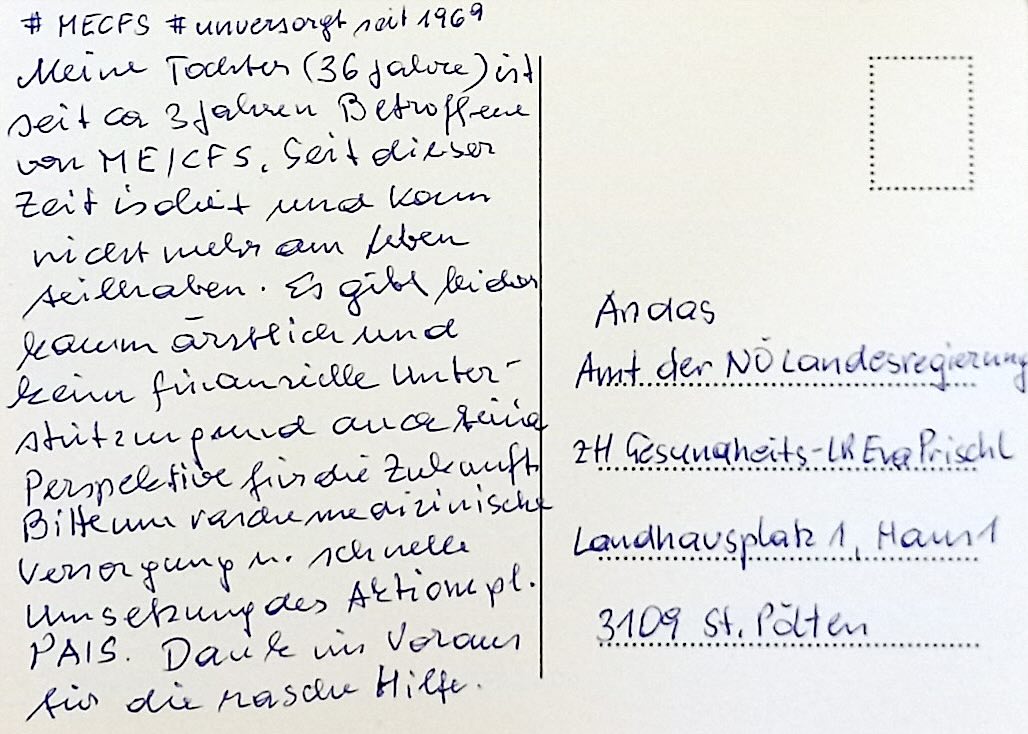 # MECFS # unversorgt seit 1969
Meine Tochter (36 Jahre) ist
seit ca 3 Jahren Betroffene
von ME/CFS. Seit dieser
Zeit isoliert und kann
nicht mehr am Leben
teilhaben. Es gibt leider
kaum ärztlich und
keine finanzielle Unter-
stützung und auch keine
Perspektive für die Zukunft
Bitte um rasche medizinische
Versorgung u. schnelle
Umsetzung des Aktionspl.
PAIS. Danke im Voraus
für die rasche Hilfe.
An das
Amt der NÖ Landesregierung
zH Gesundheits-LR Eva Prischl
Landhausplatz 1, Haus 1
3109 St. Pölten